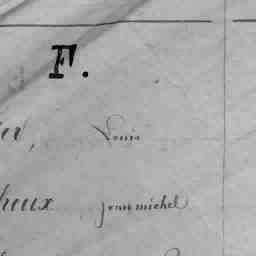 F.
er, Louis
heux Jean michel